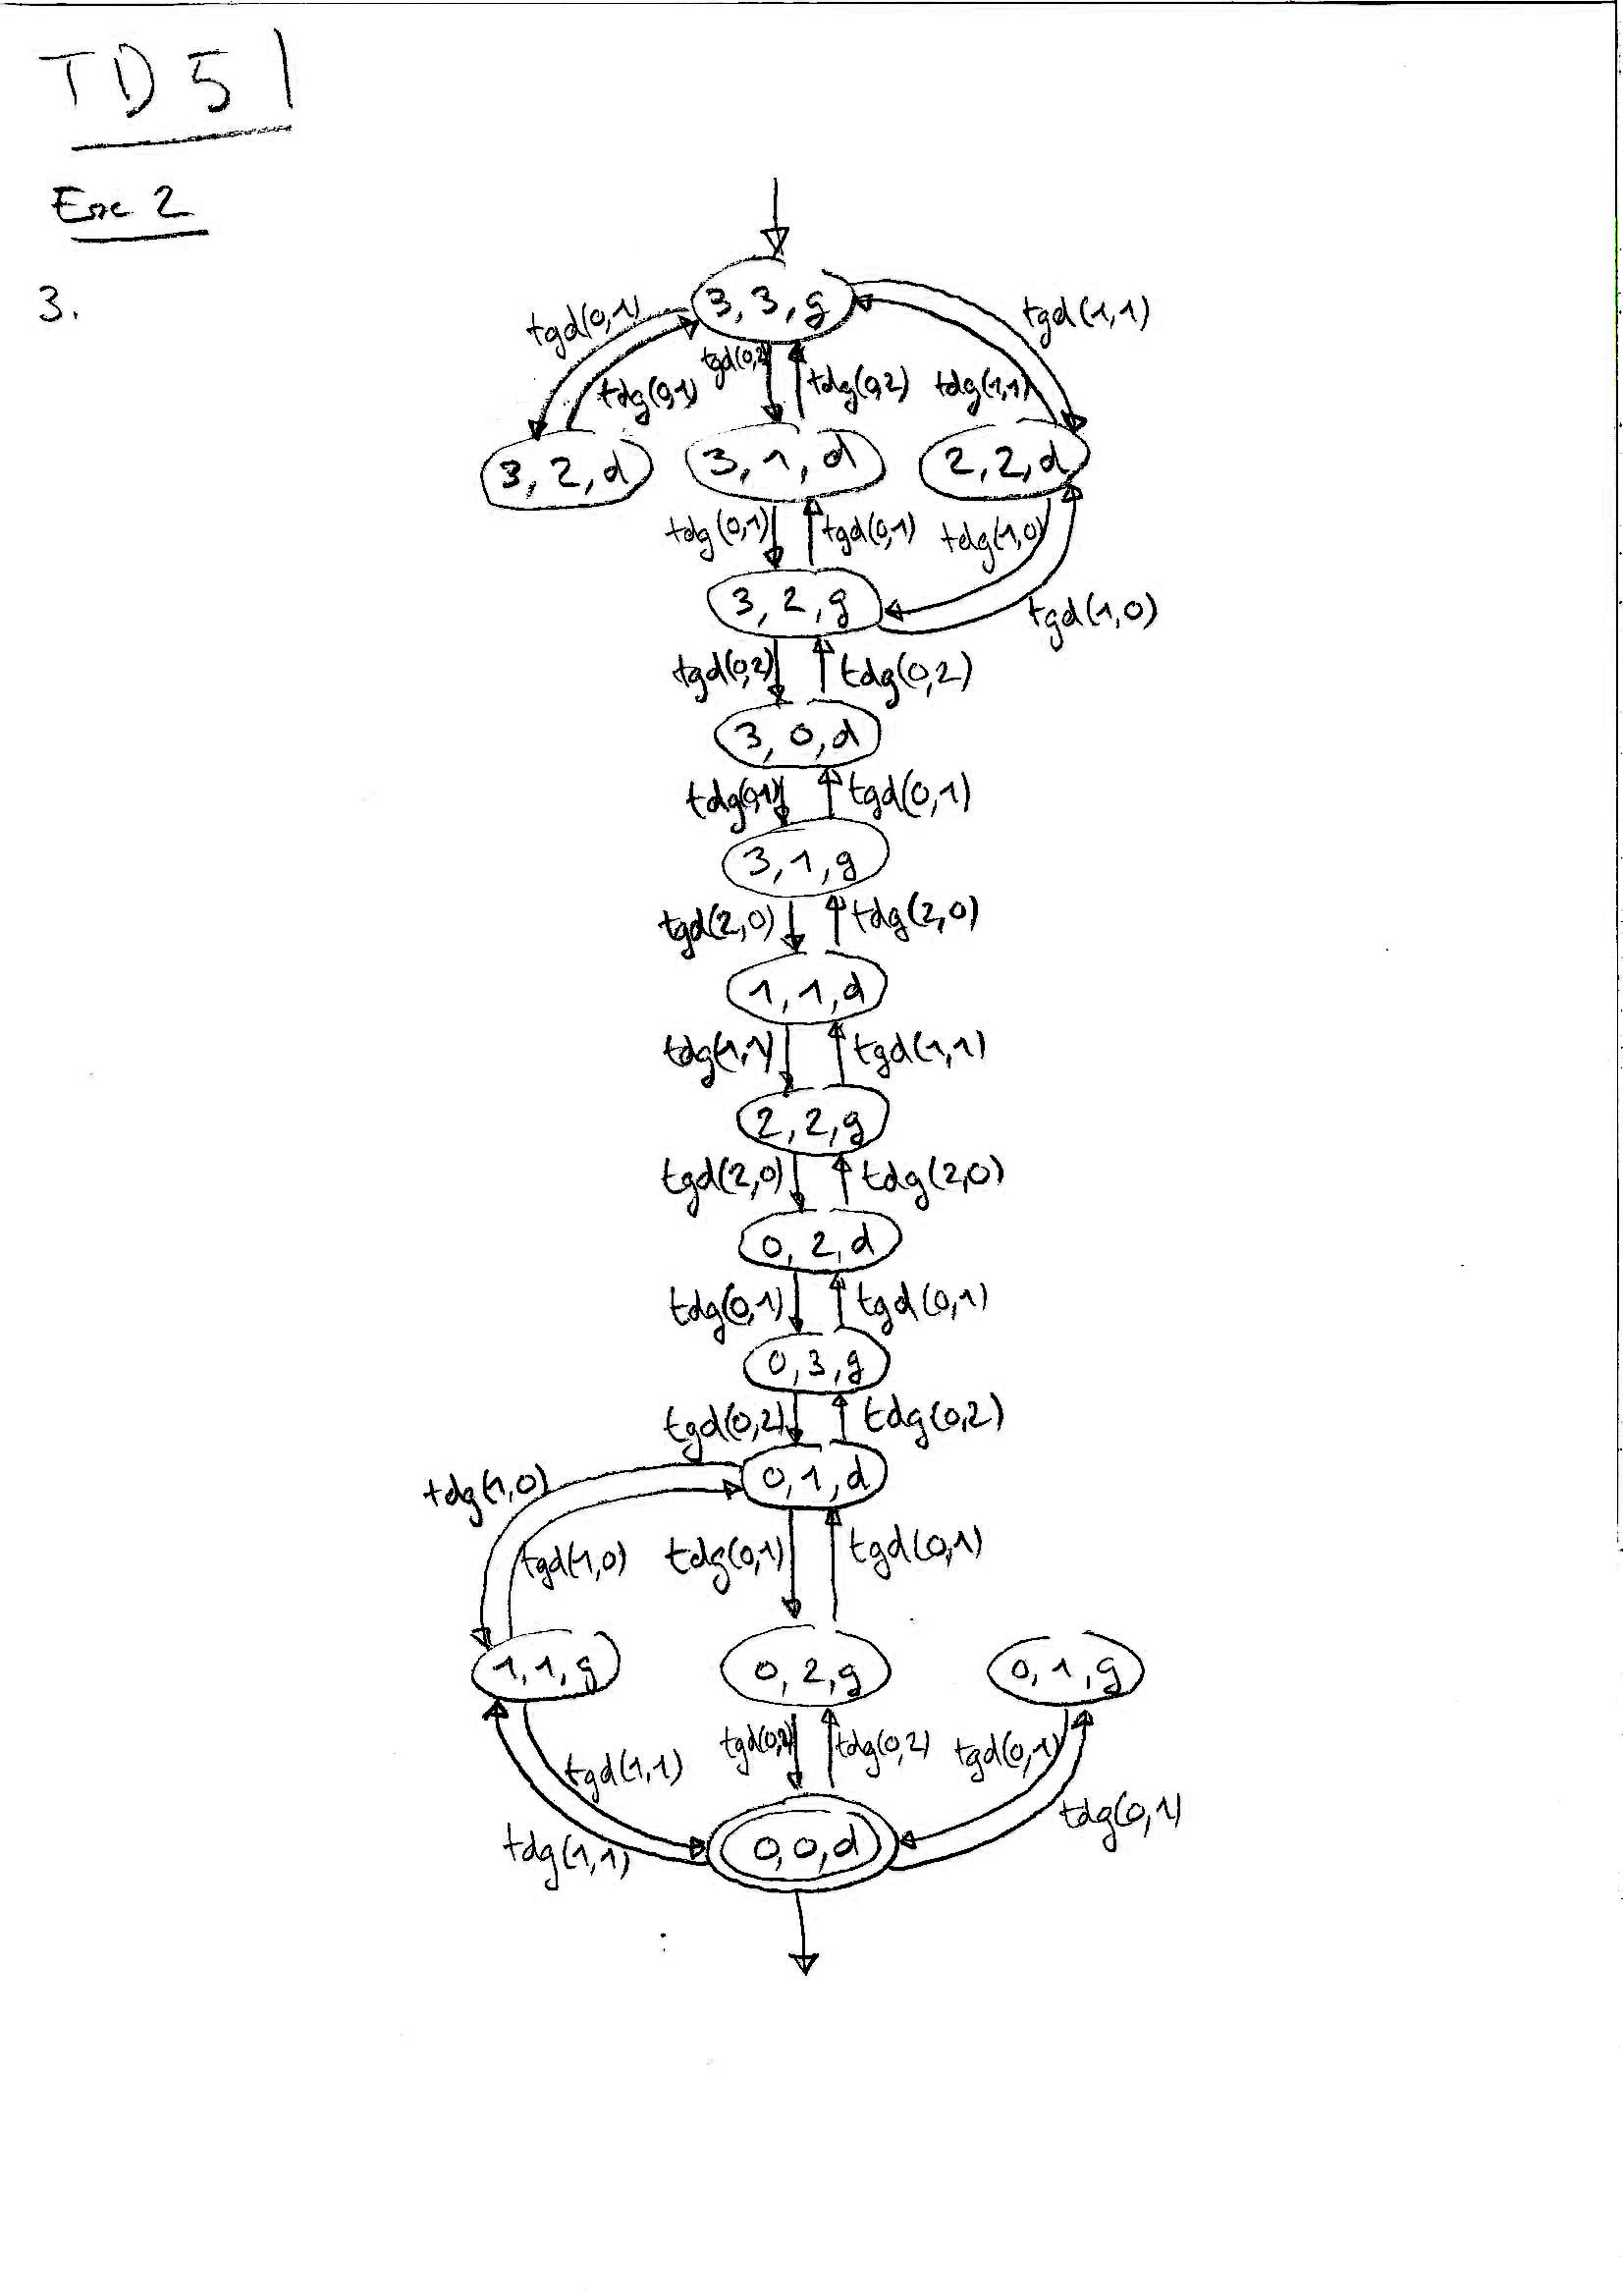 TD 5 |
Exe 2
3.
3, 3, g
tgd(0,1)
tdg(0,1)
tgd(0,2)
tdg(0,2)
tdg(1,1)
tgd(1,1)
3, 2, d
3, 1, d
2, 2, d
tdg(0,1)
tgd(0,1)
tdg(1,0)
tgd(1,0)
3, 2, g
tgd(0,2)
tdg(0,2)
3, 0, d
tdg(0,1)
tgd(0,1)
3, 1, g
tgd(2,0)
tdg(2,0)
1, 1, d
tdg(1,1)
tgd(1,1)
2, 2, g
tgd(2,0)
tdg(2,0)
0, 2, d
tdg(0,1)
tgd(0,1)
0, 3, g
tgd(0,2)
tdg(0,2)
0, 1, d
tdg(1,0)
tgd(1,0)
tdg(0,1)
tgd(0,1)
1, 1, g
0, 2, g
0, 1, g
tgd(1,1)
tdg(1,1)
tgd(0,2)
tdg(0,2)
tgd(0,1)
tdg(0,1)
0, 0, d